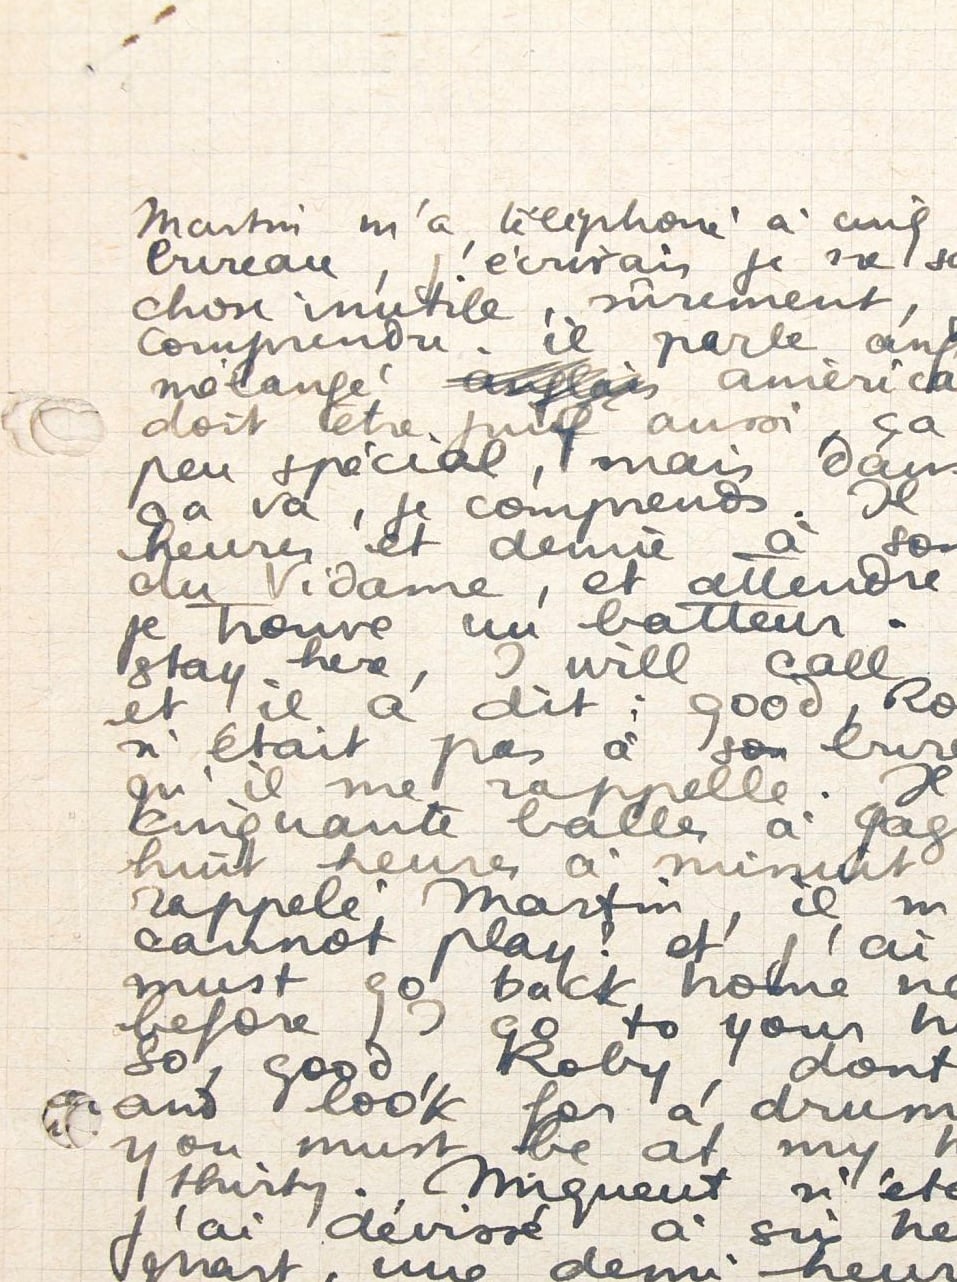 Martin m'a téléphoné à cinq
bureau, j'écrivais je ne s
chose inutile, sûrement,
comprendre. il parle ang
mélangé anglais américa
doit être juif aussi, ça
peu spécial, mais dans
ça va, je comprends. Il
heures et demie à son
du Vidame, et attendre
je trouve un batteur.
stay here, I will call
et il a dit: good, Ro
n'était pas à son bure
qu'il me rappelle. Il
kinquante balles à gag
huit heures à minuit
rappelé Martin, il m
cannot play! et j'ai
must go back home no
before I go to your h
So, good, Roby, dont
and look for a drum
you must be at my h
thirty. Miqueut n'éta
j'ai dévissé à six he
quart, une demi heur